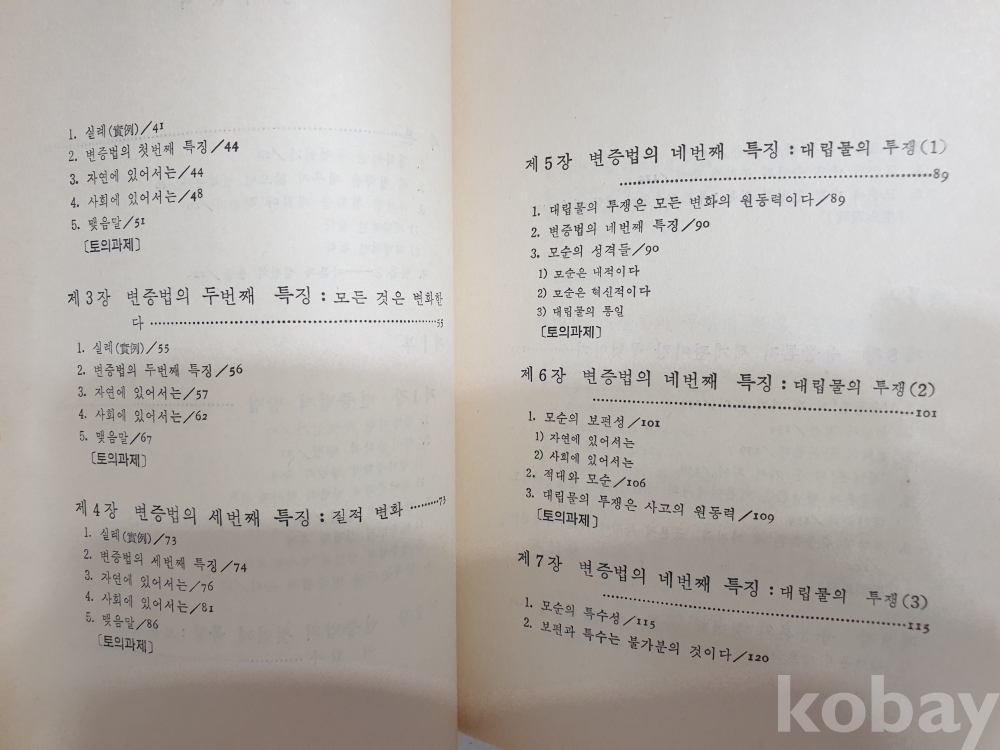 1. 실례(實例)/41
2. 변증법의 첫번째 특징/44
3. 자연에 있어서는/44
4. 사회에 있어서는/48
5. 맺음말/51
〔토의과제〕
제3장 변증법의 두번째 특징 : 모든 것은 변화한
다 ·····················································55
1. 실례(實例)/55
2. 변증법의 두번째 특징/56
3. 자연에 있어서는/57
4. 사회에 있어서는/62
5. 맺음말/67
〔토의과제〕
제4장 변증법의 세번째 특징 : 질적 변화 ·········73
1. 실례(實例)/73
2. 변증법의 세번째 특징/74
3. 자연에 있어서는/76
4. 사회에 있어서는/81
5. 맺음말/86
〔토의과제〕
제5장 변증법의 네번째 특징 : 대립물의 투쟁(1)
·····················································89
1. 대립물의 투쟁은 모든 변화의 원동력이다/89
2. 변증법의 네번째 특징/90
3. 모순의 성격들/90
1) 모순은 내적이다
2) 모순은 혁신적이다
3) 대립물의 통일
〔토의과제〕
제6장 변증법의 네번째 특징 : 대립물의 투쟁(2)
·····················································101
1. 모순의 보편성/101
1) 자연에 있어서는
2) 사회에 있어서는
2. 적대와 모순/106
3. 대립물의 투쟁은 사고의 원동력/109
〔토의과제〕
제7장 변증법의 네번째 특징 : 대립물의 투쟁(3)
·····················································115
1. 모순의 특수성/115
2. 보편과 특수는 불가분의 것이다/120
kobay